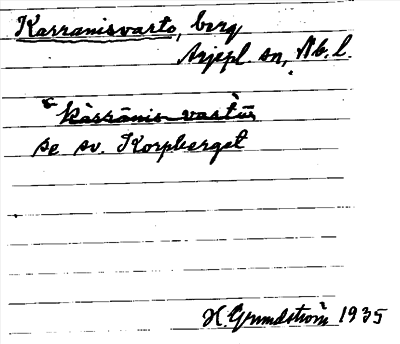 Karranisvarto, berg
Arjepl. sn, Nb. l.
se sv. Korpberget
H. Grundström 1935